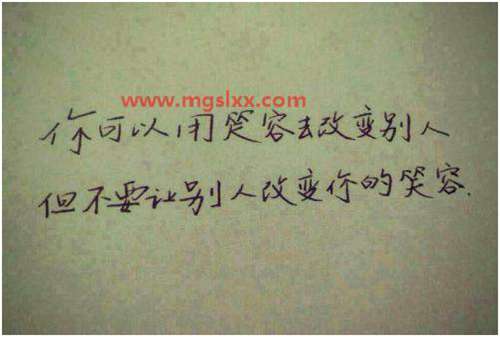 www.mgslxx.com
你可以用笑容去改变别人
但不要让别人改变你的笑容.